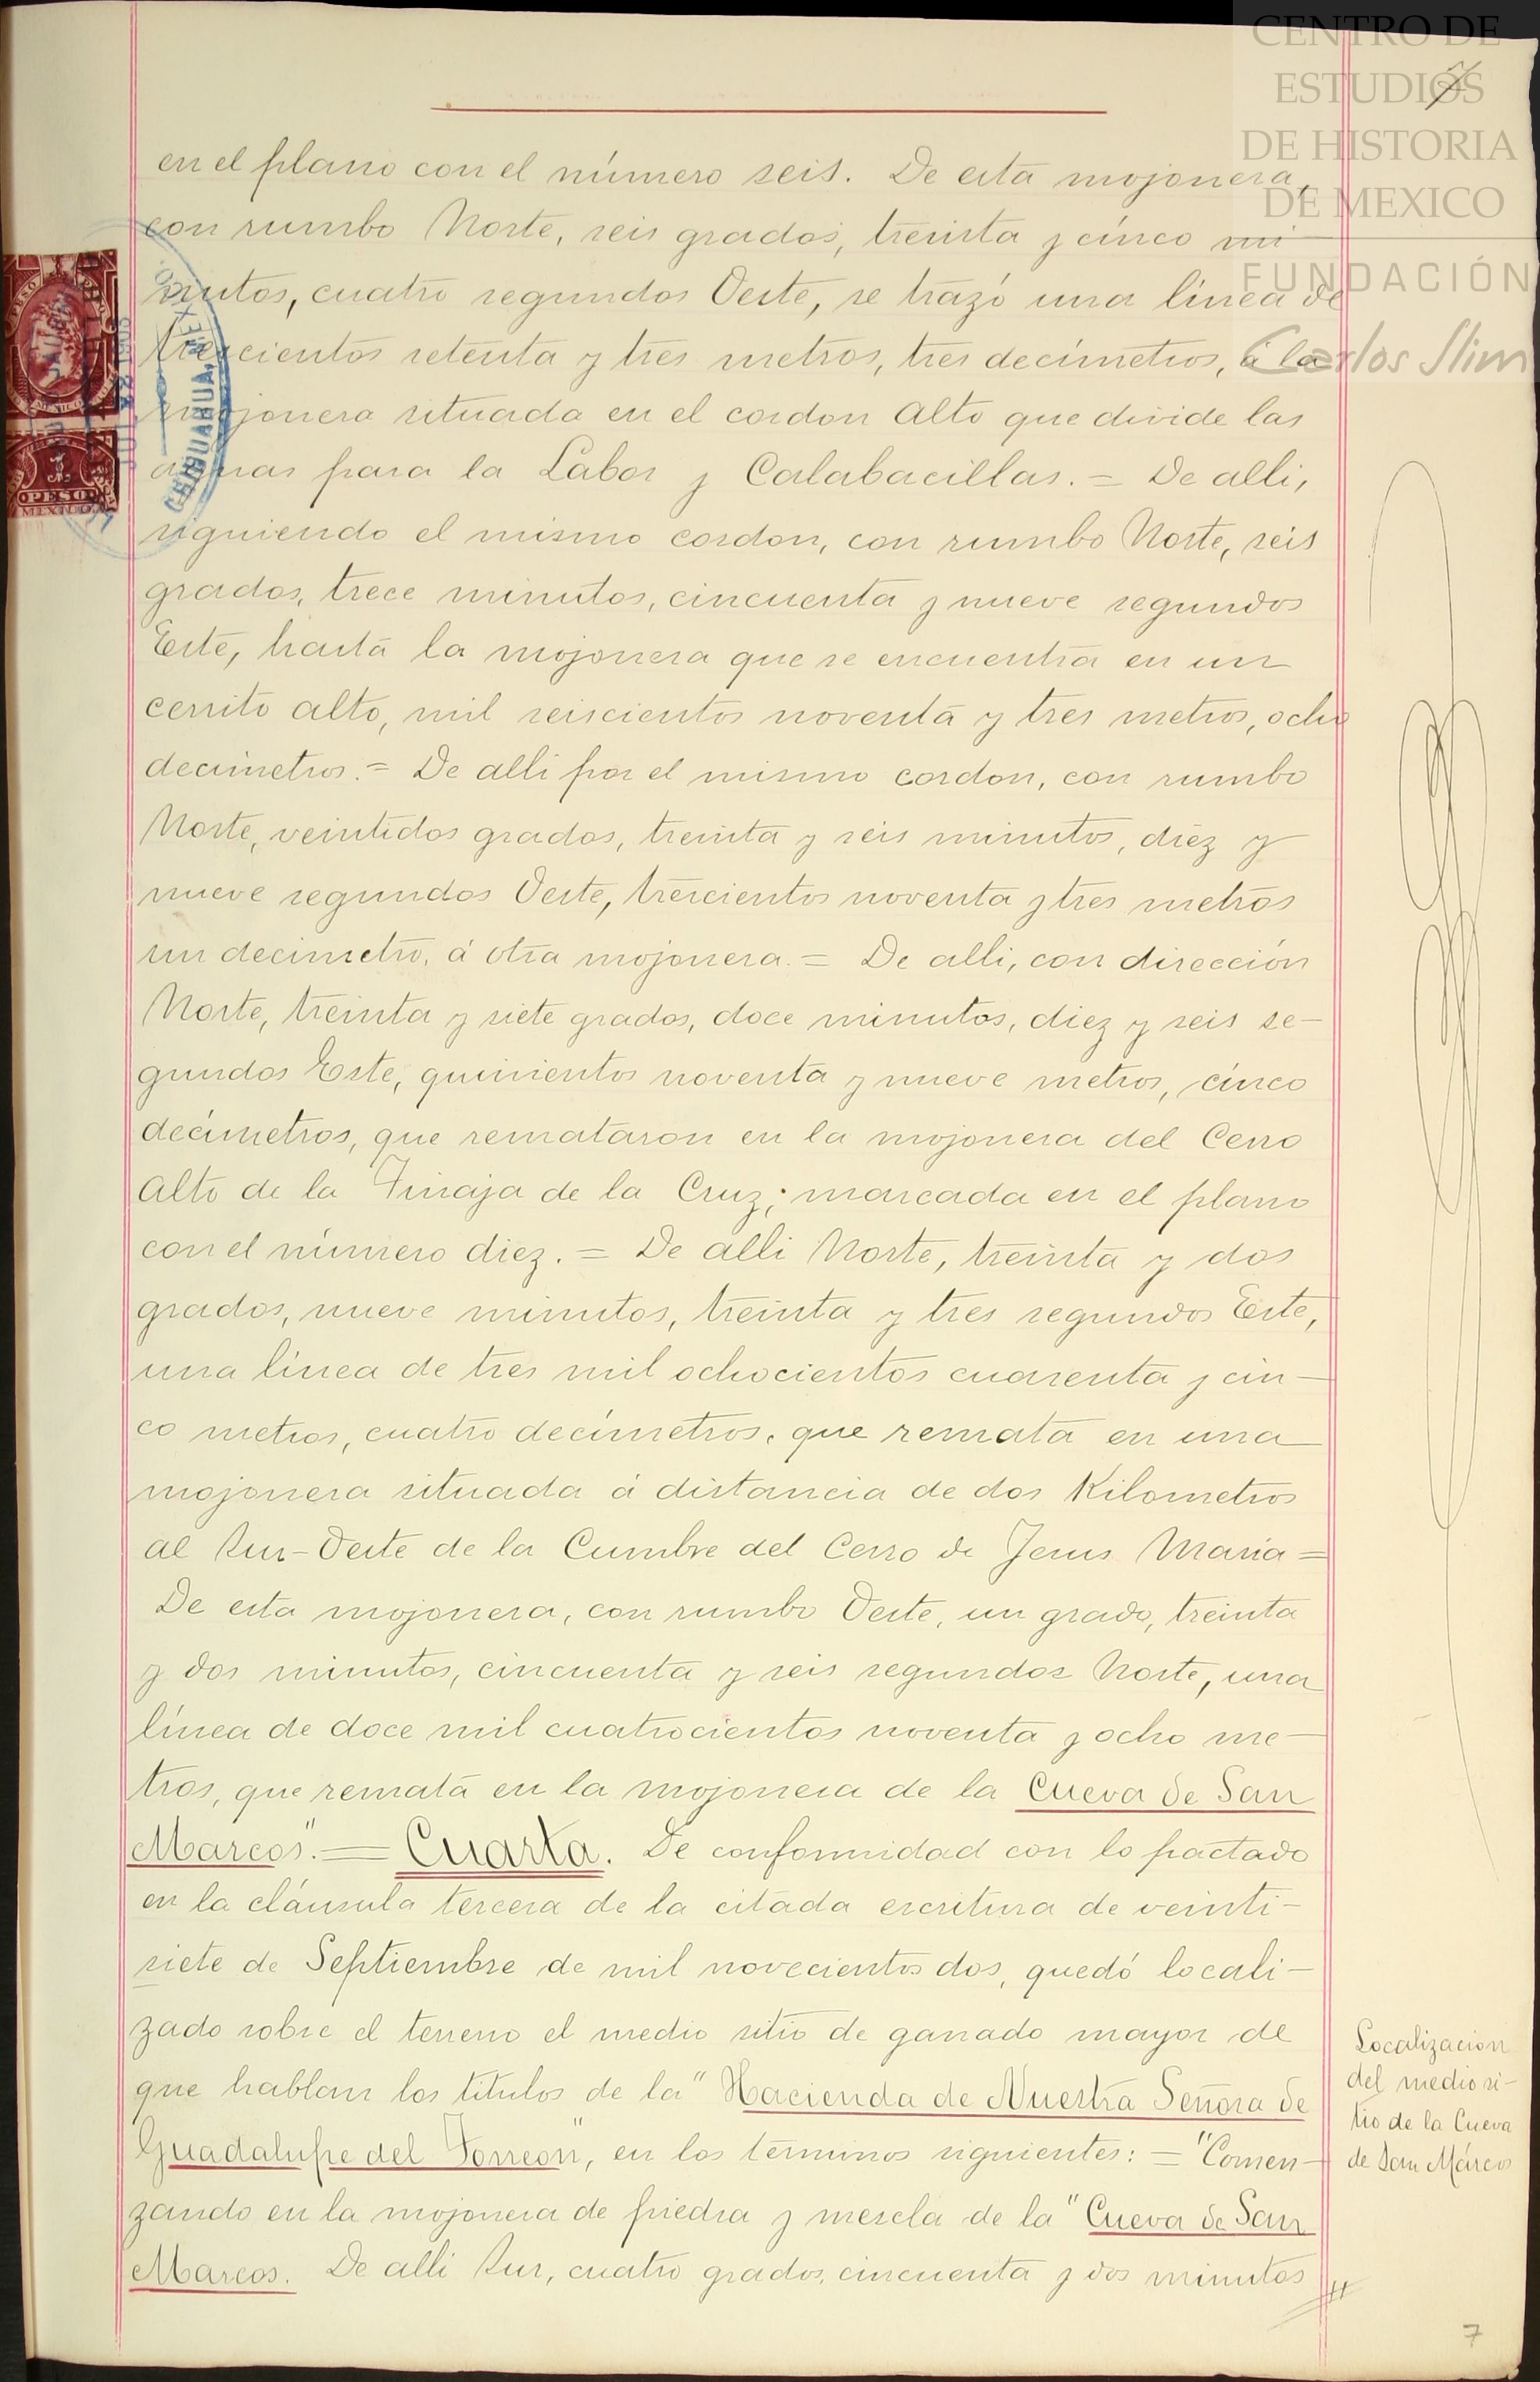 CENTRO DE
ESTUDIOS
DE HISTORIA
DE MEXICO
FUNDACIÓN
Carlos Slim
en el plano con el número seis. De esta mojonera,
con rumbo Norte, seis grados, treinta y cinco mi
nutos, cuatro segundos Oeste, se trazó una línea de
trescientos setenta y tres metros, tres decímetros, á la
mojonera situada en el cordon alto que divide las
aguas para la Labor y Calabacillas. = De alli,
siguiendo el mismo cordon, con rumbo Norte, seis
grados, trece minutos, cincuenta y nueve segundos
Este, hasta la mojonera que se encuentra en un
cerrito alto, mil seiscientos noventa y tres metros, ocho
decímetros. = De alli por el mismo cordon, con rumbo
Norte, veintidos grados, treinta y seis minutos, diez y
nueve segundos Oeste, trescientos noventa y tres metros
un decimetro, á otra mojonera. = De alli, con dirección
Norte, treinta y siete grados, doce minutos, diez y seis se-
gundos Este, quinientos noventa y nueve metros, cinco
decímetros, que remataron en la mojonera del Cerro
alto de la Tinaja de la Cruz; marcada en el plano
con el número diez. = De alli Norte, treinta y dos
grados, nueve minutos, treinta y tres segundos Este,
una línea de tres mil ochocientos cuarenta y cin-
co metros, cuatro decímetros, que remata en una
mojonera situada á distancia de dos Kilometros
al Sur-Oeste de la Cumbre del Cerro de Jesus Maria =
De esta mojonera, con rumbo Oeste, un grado, treinta
y dos minutos, cincuenta y seis segundos Norte, una
línea de doce mil cuatrocientos noventa y ocho me-
tros, que remata en la mojonera de la Cueva de San
Marcos". = Cuarta. De conformidad con lo pactado
en la cláusula tercera de la citada escritura de veinti-
siete de Septiembre de mil novecientos dos, quedó locali-
zado sobre el terreno el medio sitio de ganado mayor de
que hablan los titulos de la "Hacienda de Nuestra Señora de
Guadalupe del Torreon", en los términos siguientes: = "Comen-
zando en la mojonera de piedra y mezcla de la "Cueva de San
Marcos. De alli Sur, cuatro grados, cincuenta y dos minutos
Localizacion
del medio si-
tio de la Cueva
de San Márcos
7
PESO
MEXICO
CHIHUAHUA, MEX